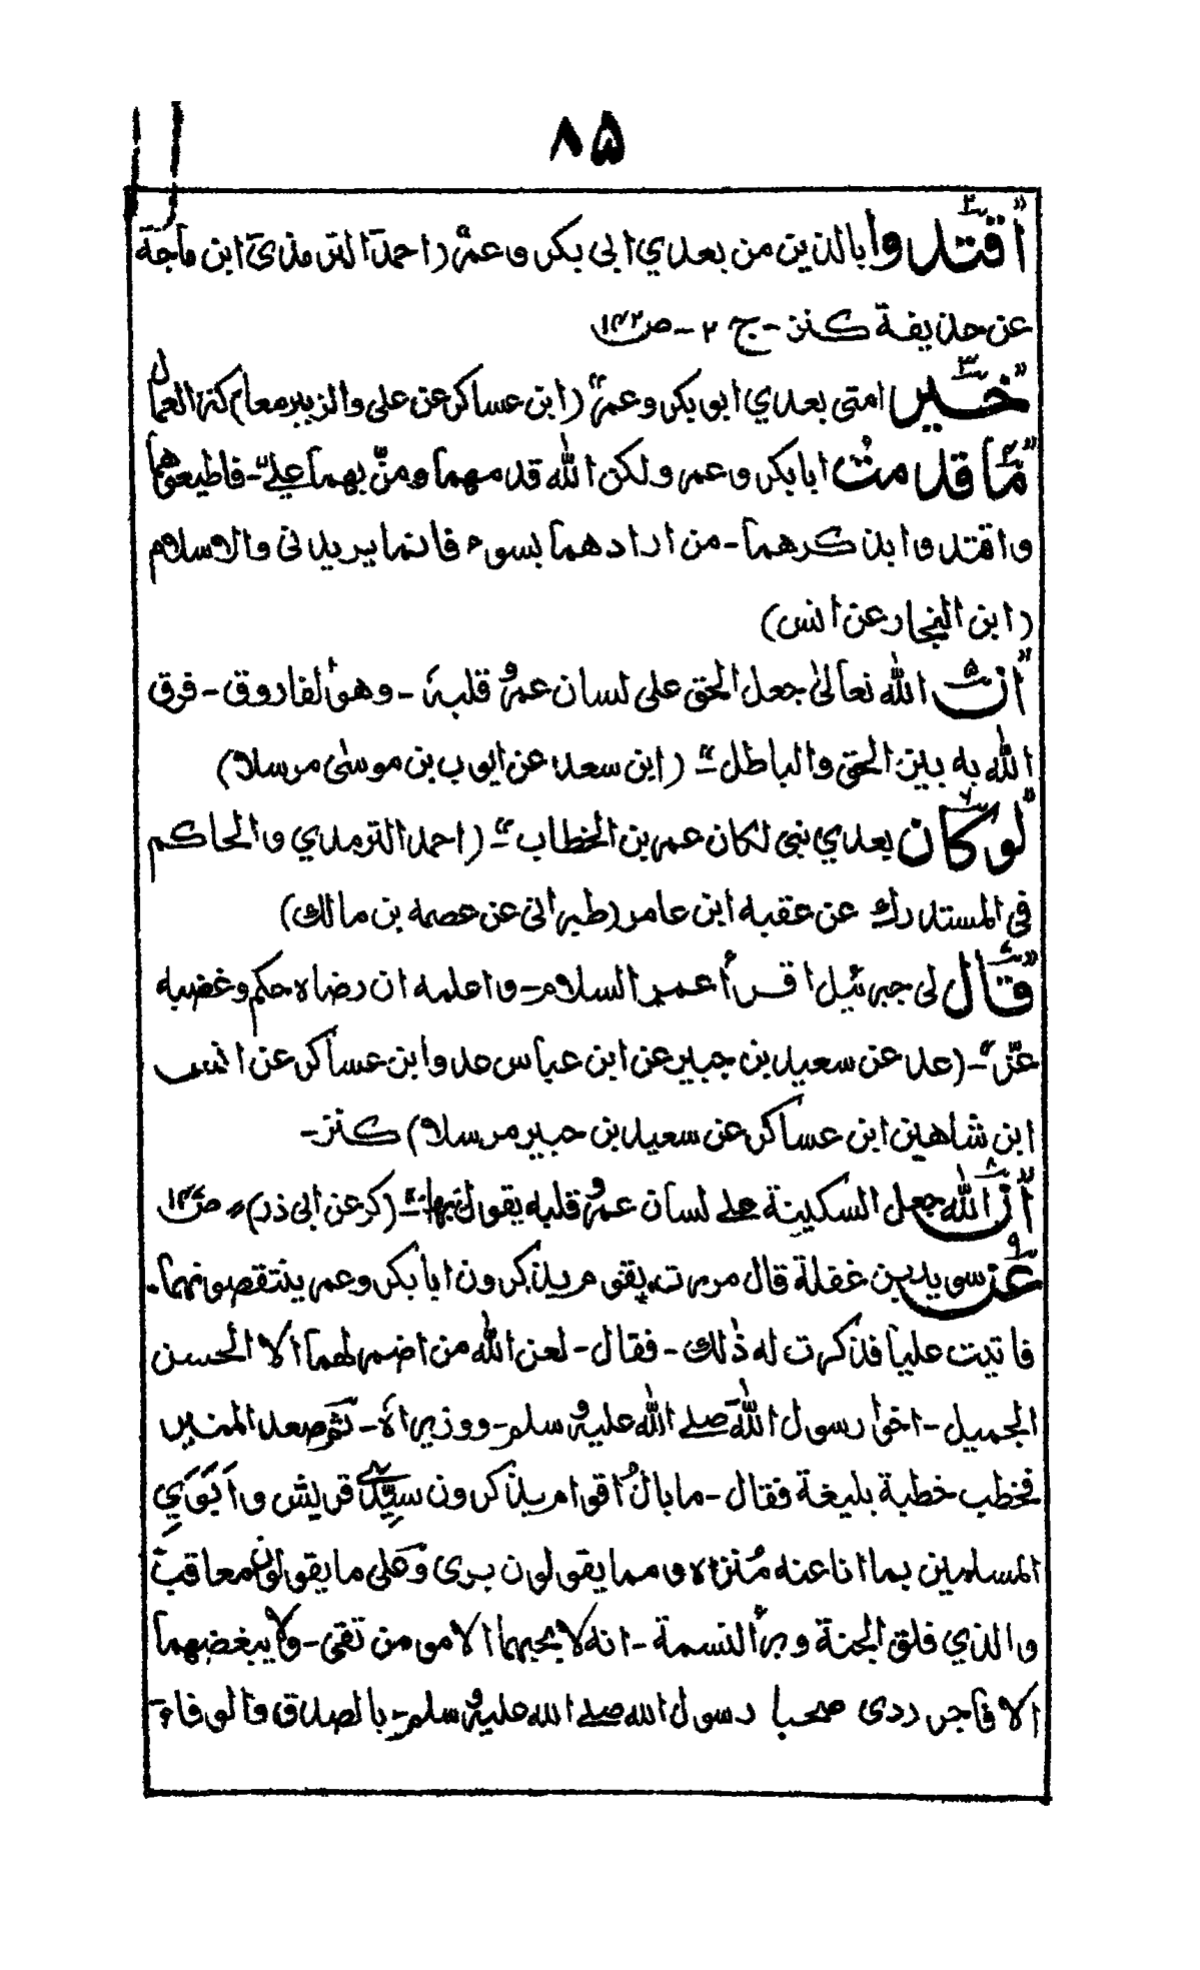 ۸۵
"اقتدوا بالذين من بعدي ابی بكر و عمرؓ (احمد الترمذی ابن ماجة
عن حذيفة كنز - ج ۲ - ص۱۴۲
"خير امتی بعدي ابو بكر و عمرؓ" (ابن عساكر عن علی والزبير معا) كنز العمال
"ما قدمتُ ابابكر و عمر ولكن الله قدمهما ومنّ بهما علیّ - فاطيعوهما
واقتدوا بذكرهما - من ارادهما بسوء فانما يريدنی والاسلام
(ابن النجار عن انس)
"انّ الله تعالیٰ جعل الحق علی لسان عمر و قلبه - وهو الفاروق - فرق
الله به بين الحق والباطل" - (ابن سعد عن ايوب بن موسیٰ مرسلا)
"لو كان بعدي نبی لكان عمر بن الخطاب" - (احمد الترمذي والحاكم
فی المستدرك عن عقبه ابن عامر (طبرانی عن عصمه بن مالك)
"قال لی جبرئيل اقرأ عمر السلام - واعلمه ان رضاه حكم وغضبه
عزّ" - (عد عن سعيد بن جبير عن ابن عباس عد وابن عساكر عن انس
ابن شاهين ابن عساكر عن سعيد بن جبير مرسلا) كنز -
"انّ الله جعل السكينة علے لسان عمر و قلبه يقول بها" - (كر عن ابی ذر) ص۱۴۷
عن سويد بن غفلة قال مررت بقوم يذكرون ابا بكر و عمر ينتقصونهما -
فاتيت علياً فذكرت له ذٰلك - فقال - لعن الله من اضمر لهما الا الحسن
الجميل - اخوا رسول الله صلے الله عليه و سلم - ووزيراه - ثم صعد المنبر
فخطب خطبة بليغة فقال - ما بالُ اقوام يذكرون سيّدَی قريش و اَبَوَيِ
المسلمين بما انا عنه مُنزه و مما يقولون بری وَعلی ما يقولون معاقب
والذي فلق الجنة و برأ النسمة - انه لا يحبهما الا مومن تقی - ولا يبغضهما
الا فاجر ردی صحبا رسول الله صلے الله عليه و سلم - بالصدق والوفاء